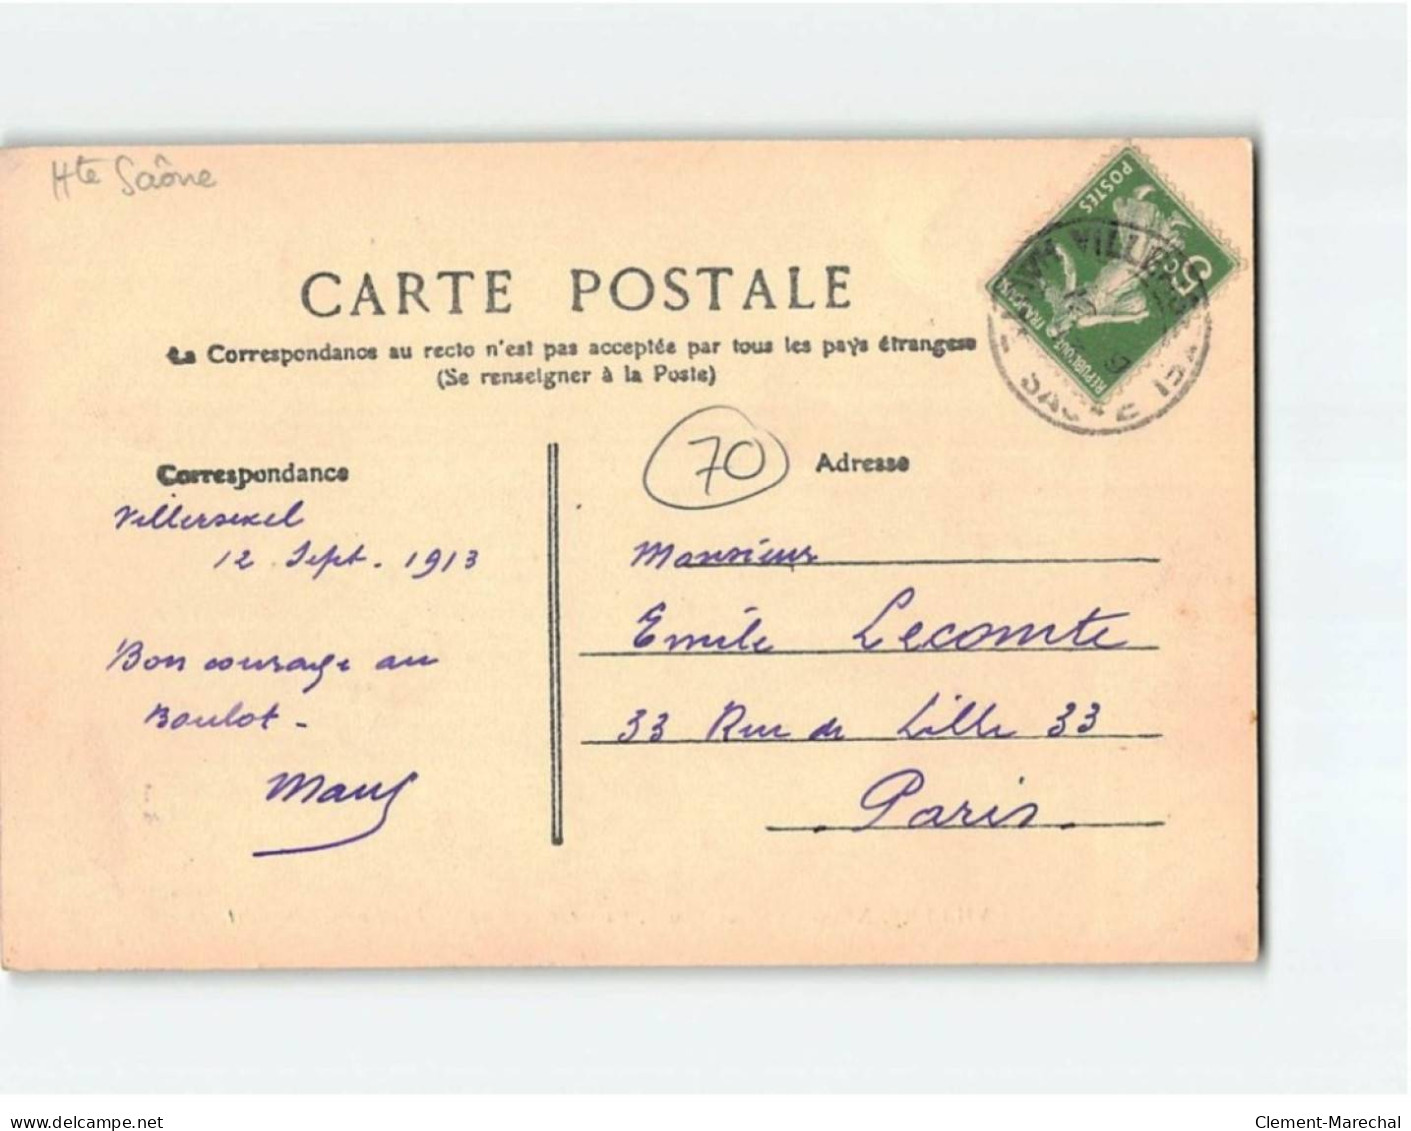 Hte Saône
POSTES
5c
CARTE POSTALE
La Correspondance au recto n'est pas acceptée par tous les pays étrangers
(Se renseigner à la Poste)
70
Correspondance
Adresse
Villersexel
12 Sept. 1913
Bon courage au
Boulot -
Monsieur
Emile Lecomte
33 Rue de Lille 33
Paris.
delcampe.net
Clement-Marechal